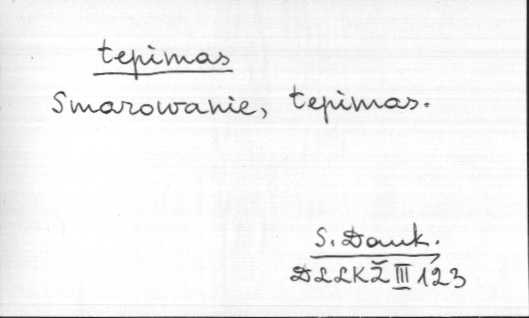 tepimas
Smarowanie, tepimas.
S. Dauk.
DLLKŽ III 123